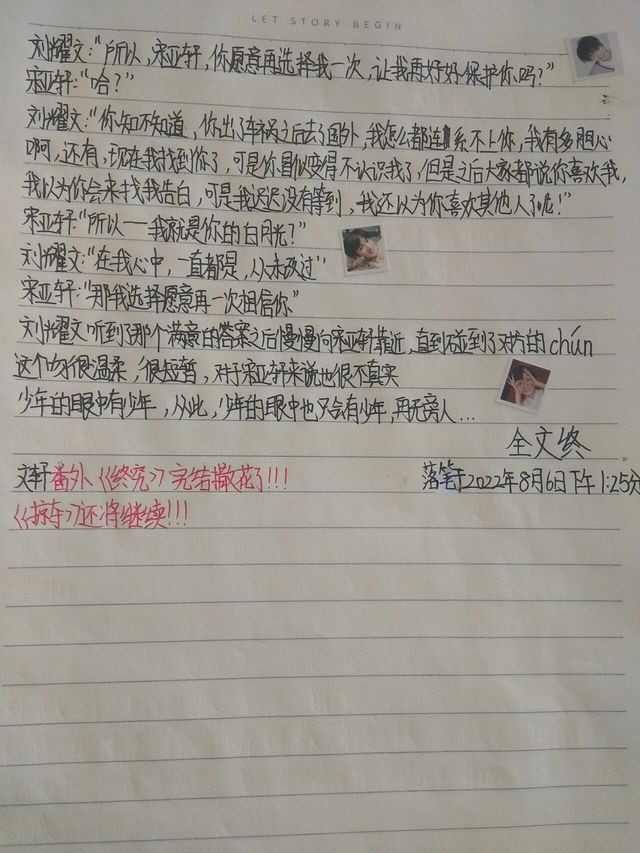 LET STORY BEGIN
刘耀文:“所以，宋亚轩，你愿意再选择我一次，让我再好好保护你吗?”
宋亚轩:“哈?”
刘耀文:“你知不知道，你出了车祸之后去了国外，我怎么都连系不上你，我有多胆心
啊，还有，现在我找到你了，可是你冒似变得不认识我了，但是之后大家都说你喜欢我，
我以为你会来找我告白，可是我迟迟没有等到，我还以为你喜欢其他人了呢!”
宋亚轩:“所以——我就是你的白月光?”
刘耀文:“在我心中，一直都是，从未改过”
宋亚轩:“那我选择愿意再一次相信你”
刘耀文听到了那个满意的答案之后慢慢向宋亚轩靠近，直到碰到了对方的chún
这个吻很温柔，很短暂，对于宋亚轩来说也很不真实
少年的眼中有少年，从此，少年的眼中也只会有少年，再无旁人...
全文终
文轩番外《终究》完结撒花了!!!
落笔于2022年8月6日下午1:25分
《掠夺》还将继续!!!